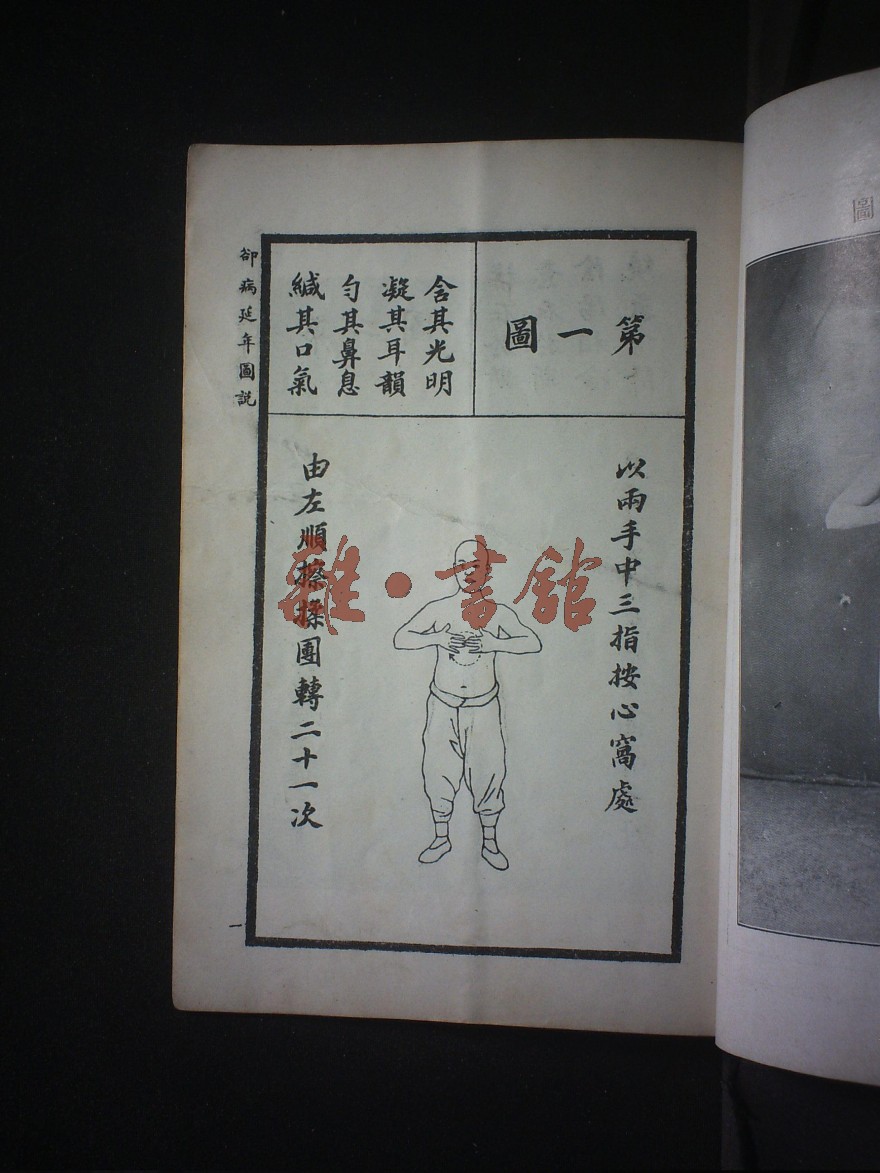 第一圖
含其光明
凝其耳韻
勻其鼻息
緘其口氣
以兩手中三指按心窩處
由左順擦揉團轉二十一次
卻病延年圖說
一
雅·書館
圖